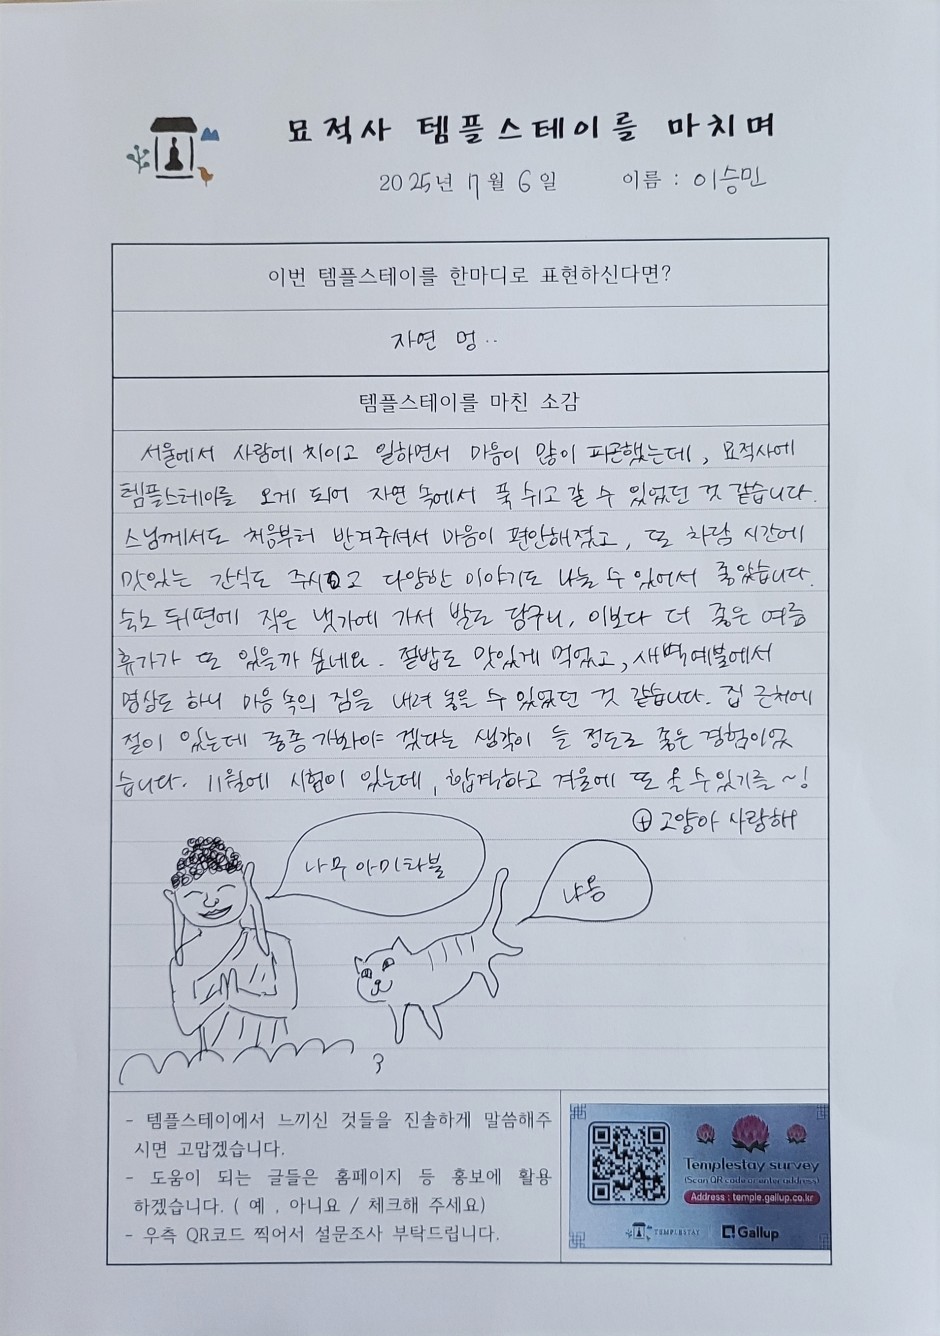 묘적사 템플스테이를 마치며
2025년 7월 6일 이름 : 이승민
이번 템플스테이를 한마디로 표현하신다면?
자연 멍..
템플스테이를 마친 소감
서울에서 사람에 치이고 일하면서 마음이 많이 피곤했는데, 묘적사에
템플스테이를 오게 되어 자연 속에서 푹 쉬고 갈 수 있었던 것 같습니다.
스님께서도 처음부터 반겨주셔서 마음이 편안해졌고, 또 차담 시간에
맛있는 간식도 주시고 다양한 이야기도 나눌 수 있어서 좋았습니다.
숙소 뒤편에 작은 냇가에 가서 발도 담구니, 이보다 더 좋은 여름
휴가가 또 있을까 싶네요. 절밥도 맛있게 먹었고, 새벽예불에서
명상도 하니 마음 속의 짐을 내려 놓을 수 있었던 것 같습니다. 집 근처에
절이 있는데 종종 가봐야 겠다는 생각이 들 정도로 좋은 경험이었
습니다. 11월에 시험이 있는데, 합격하고 겨울에 또 올 수 있기를 ~!
⊕ 고양아 사랑해
나무아미타불
냐옹
- 템플스테이에서 느끼신 것들을 진솔하게 말씀해주
시면 고맙겠습니다.
- 도움이 되는 글들은 홈페이지 등 홍보에 활용
하겠습니다. ( 예 , 아니요 / 체크해 주세요)
- 우측 QR코드 찍어서 설문조사 부탁드립니다.
Templestay survey
(Scan QR code or enter address)
Address : temple.gallup.co.kr
TEMPLESTAY Gallup